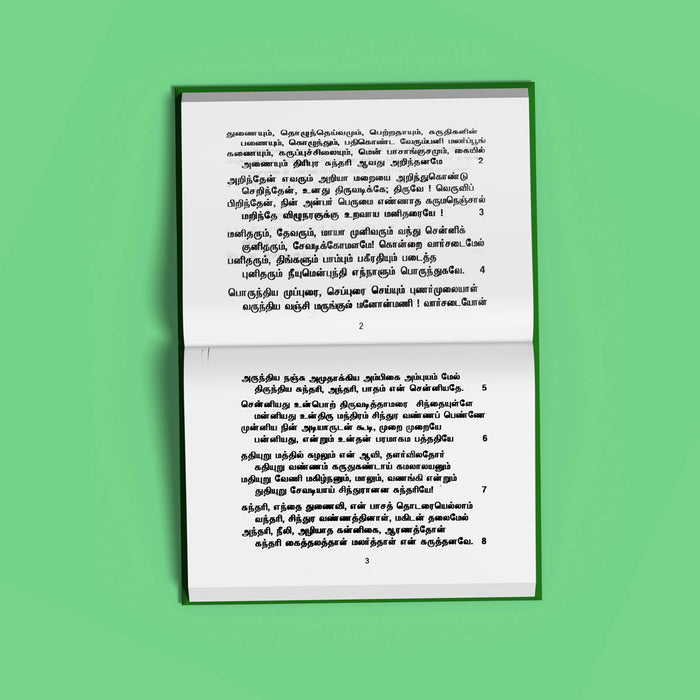 துணையும், தொழுந்தெய்வமும், பெற்றதாயும், சுருதிகளின்
பணையும், கொழுந்தும், பதிகொண்ட வேரும்பனி மலர்ப்பூங்
கணையும், கருப்புச்சிலையும், மென் பாசாங்குசமும், கையில்
அணையும் திரிபுர சுந்தரி ஆவது அறிந்தனமே 2
அறிந்தேன் எவரும் அறியா மறையை அறிந்துகொண்டு
செறிந்தேன், உனது திருவடிக்கே; திருவே ! வெருவிப்
பிறிந்தேன், நின் அன்பர் பெருமை எண்ணாத கருமநெஞ்சால்
மறிந்தே விழுநரகுக்கு உறவாய மனிதரையே ! 3
மனிதரும், தேவரும், மாயா முனிவரும் வந்து சென்னிக்
குனிதரும், சேவடிக்கோமளமே! கொன்றை வார்சடைமேல்
பனிதரும், திங்களும் பாம்பும் பகீரதியும் படைத்த
புனிதரும் நீயுமென்புந்தி எந்நாளும் பொருந்துகவே. 4
பொருந்திய முப்புரை, செப்புரை செய்யும் புணர்முலையாள்
வருந்திய வஞ்சி மருங்குல் மனோன்மணி ! வார்சடையோன்
2
அருந்திய நஞ்சு அமுதாக்கிய அம்பிகை அம்புயம் மேல்
திருந்திய சுந்தரி, அந்தரி, பாதம் என் சென்னியதே. 5
சென்னியது உன்பொற் திருவடித்தாமரை சிந்தையுள்ளே
மன்னியது உன்திரு மந்திரம் சிந்துர வண்ணப் பெண்ணே
முன்னிய நின் அடியாருடன் கூடி, முறை முறையே
பன்னியது, என்றும் உன்தன் பரமாகம பத்ததியே 6
ததியுறு மத்தில் சுழலும் என் ஆவி, தளர்விலதோர்
கதியுறு வண்ணம் கருதுகண்டாய் கமலாலயனும்
மதியுறு வேணி மகிழ்நனும், மாலும், வணங்கி என்றும்
துதியுறு சேவடியாய் சிந்துரானன சுந்தரியே! 7
சுந்தரி, எந்தை துணைவி, என் பாசத் தொடரையெல்லாம்
வந்தரி, சிந்துர வண்ணத்தினாள், மகிடன் தலைமேல்
அந்தரி, நீலி, அழியாத கன்னிகை, ஆரணத்தோன்
சுந்தரி கைத்தலத்தாள் மலர்த்தாள் என் கருத்தனவே. 8
3